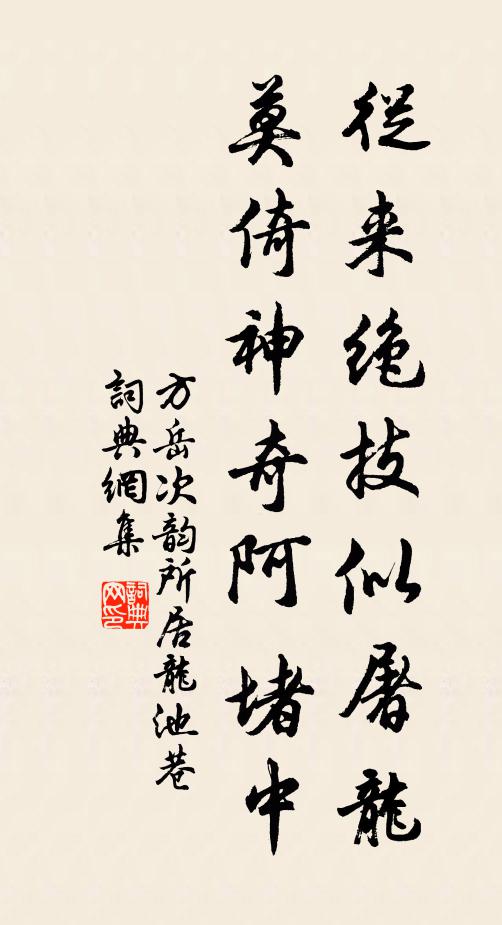 從来绝技似屠龍
莫倚神奇阿堵中
方岳次韵所居龍池巷
詞典網集
詞典网印